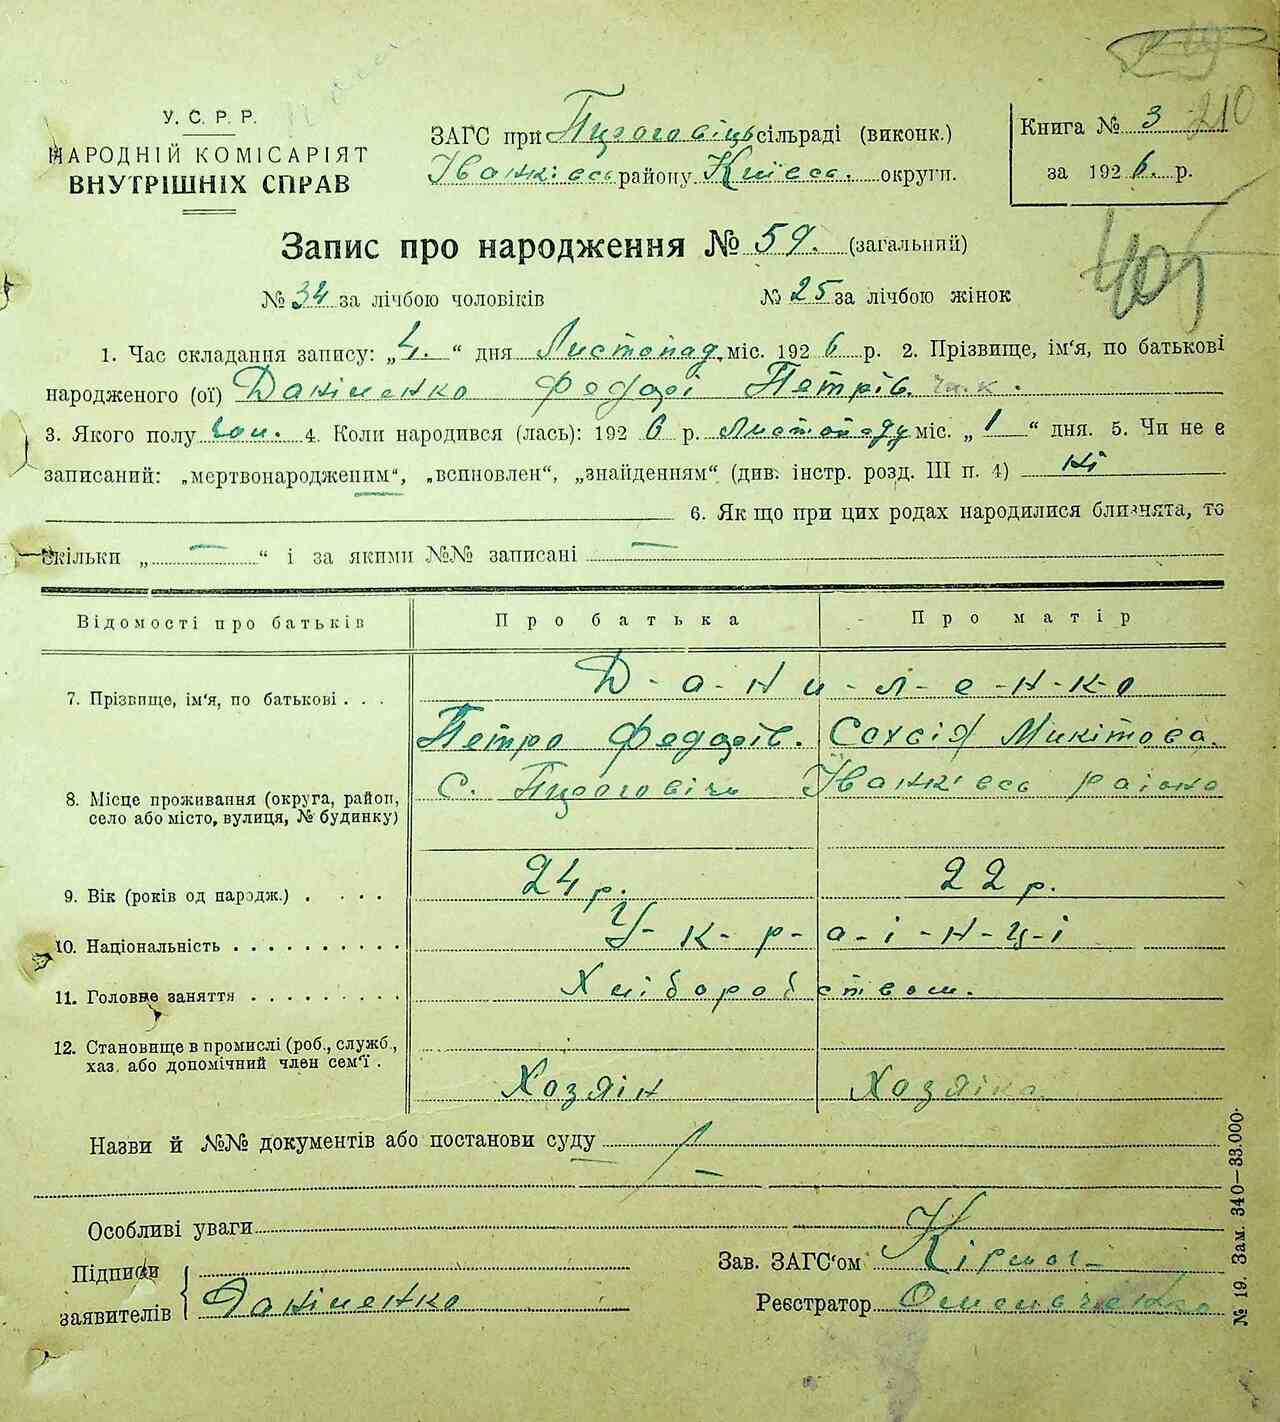 210
У. С. Р. Р.
НАРОДНІЙ КОМІСАРІЯТ
ВНУТРІШНІХ СПРАВ
ЗАГС при сільраді (виконк.)
Іванківсь району Київсь. округи.
Книга № 3
за 1926. р.
405
Запис про народження № 59. (загальний)
№ 34 за лічбою чоловіків № 25 за лічбою жінок
1. Час складання запису: „4.“ дня Листопад міс. 1926 р. 2. Прізвище, ім'я, по батькові
народженого (ої) Даніленко Федорі Петрів.
3. Якого полу чол. 4. Коли народився (лась): 1926 р. Листопаду міс. „1“ дня. 5. Чи не є
записаний: „мертвонародженим“, „всиновлен“, „знайденням“ (див. інстр. розд. III п. 4) ні
6. Як що при цих родах народилися близнята, то
скільки „—“ і за якими №№ записані —
Відомості про батьків Про батька Про матір
7. Прізвище, ім'я, по батькові . . . Д-а-н-и-л-е-н-к-о
Петро Федорів. Сохвія Микітова.
8. Місце проживання (округа, район, село або місто, вулиця, № будинку) С. Іванківсь раіоно
9. Вік (років од народж.) . . . . 24 р. 22 р.
10. Національність . . . . . . . . . . У-к-р-а-і-н-ц-і
11. Головне заняття . . . . . . . . . Хліборобством.
12. Становище в промислі (роб., служб., хаз. або допомічний член сем'ї . Хозяін Хозяіка
Назви й №№ документів або постанови суду
Особливі уваги
Підписи
заявителів Даніленко
Зав. ЗАГС'ом
Реєстратор
№ 19. Зам. 340—33.000.